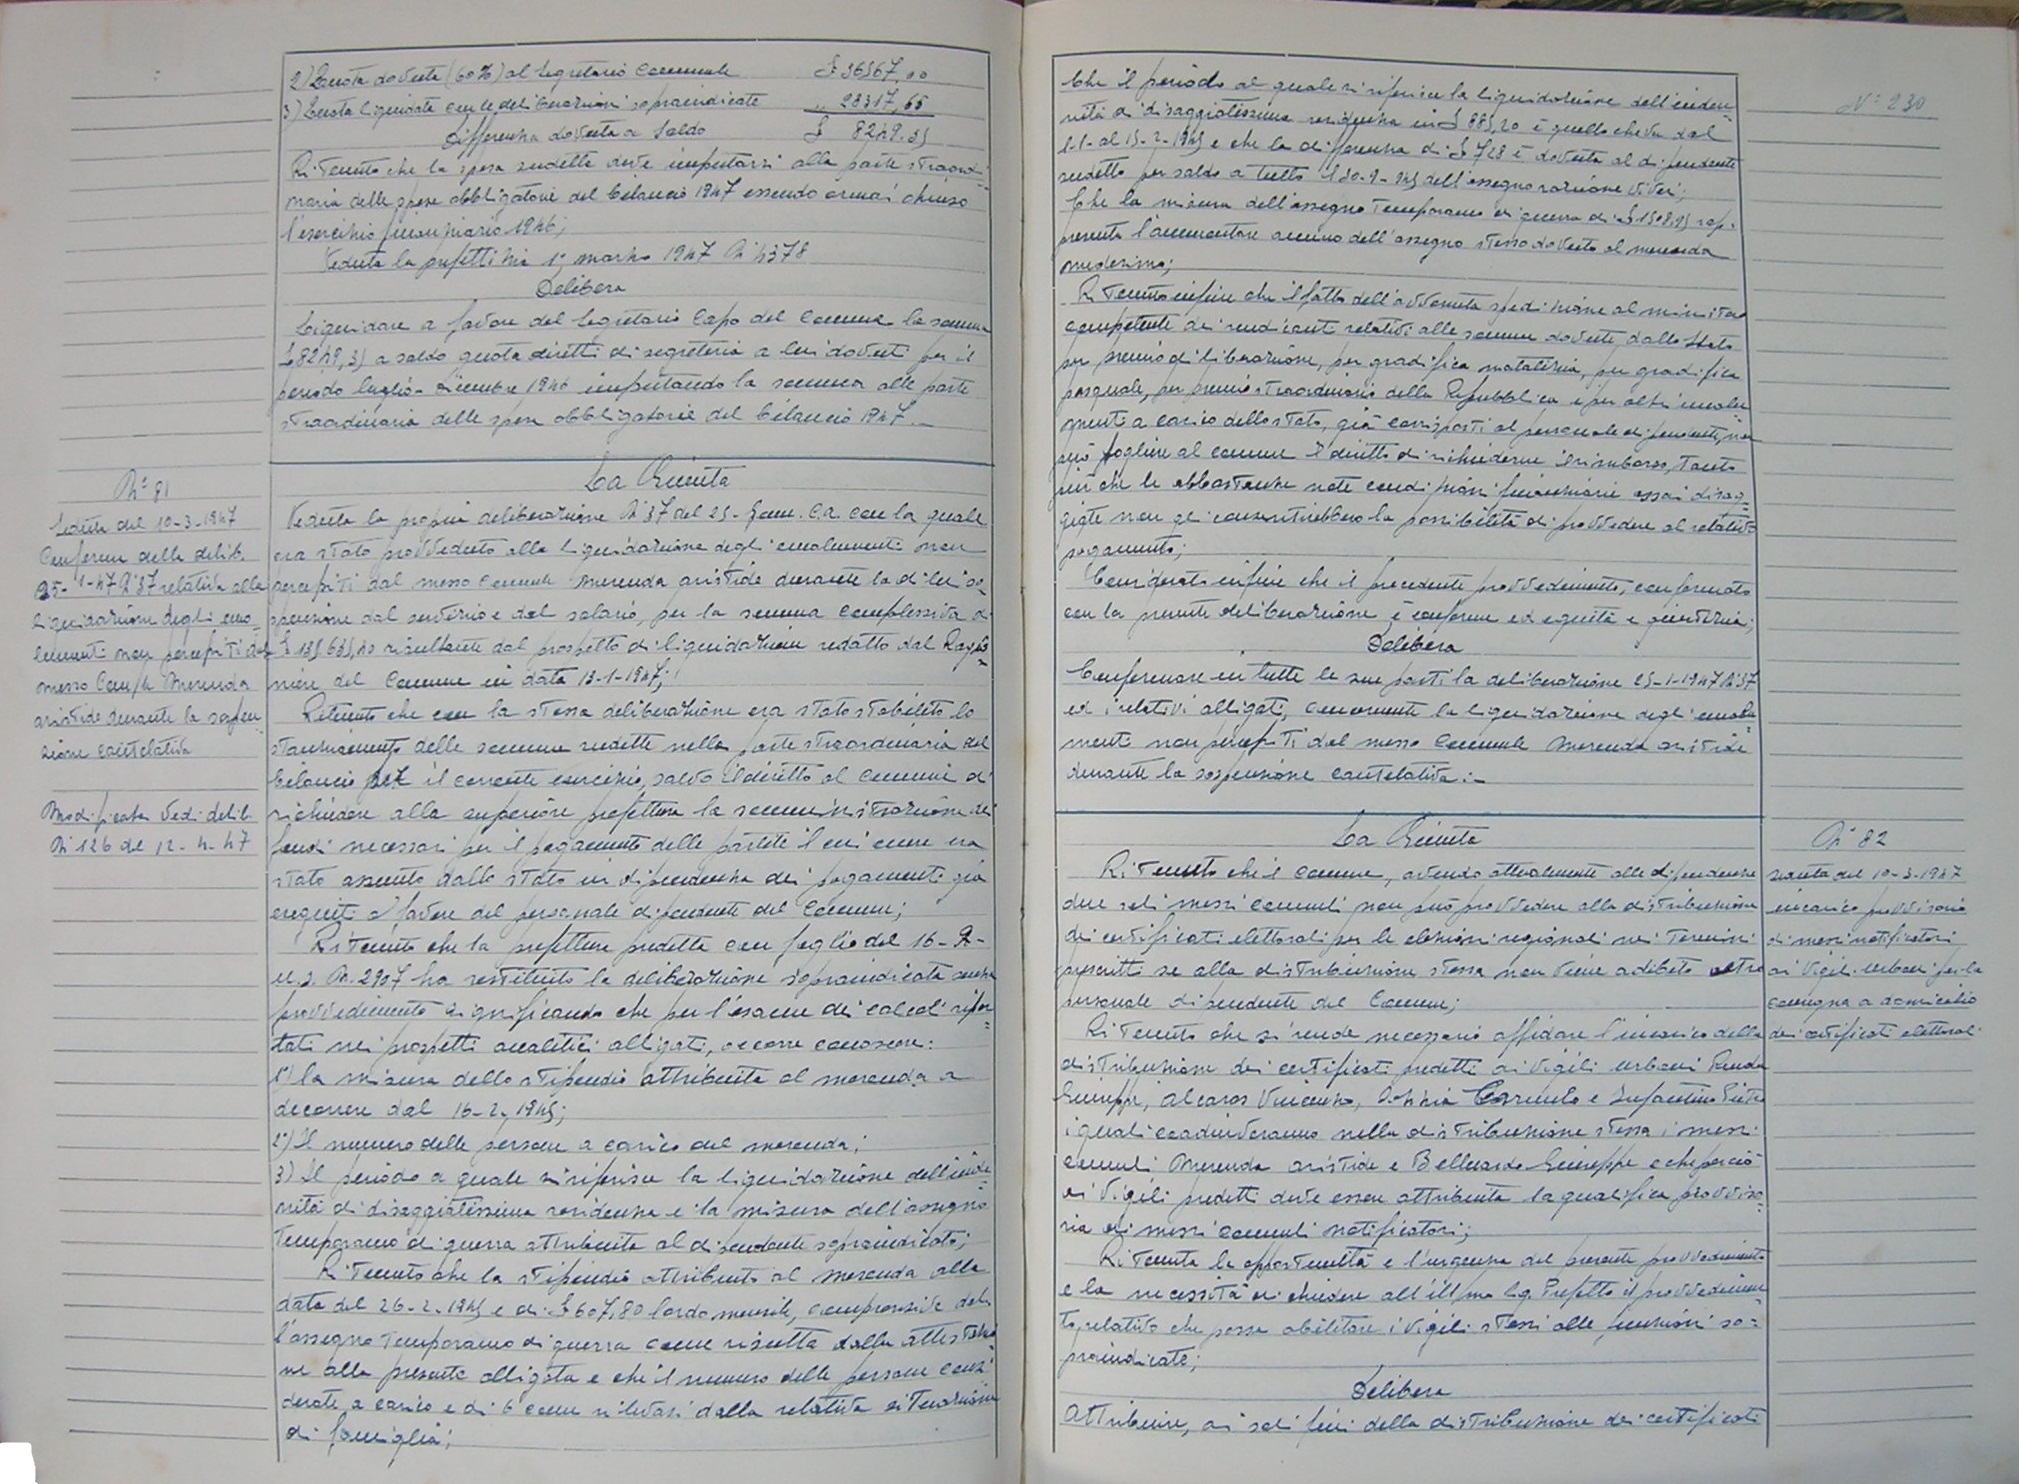 2) Quota dovuta (60%) al Segretario Comunale £ 36567,00
3) Quota liquidata con le deliberazioni sopraindicate " 28317,65
Differenza dovuta a saldo £ 8249.35
Ritenuto che la spesa suddetta deve imputarsi alla parte straordi-
naria delle spese obbligatorie del bilancio 1947 essendo ormai chiuso
l'esercizio finanziario 1946;
Veduta la prefettizia 1° marzo 1947 N° 4378
Delibera
Liquidare a favore del Segretario Capo del Comune la somma
£ 8249,35 a saldo quota diretti di segreteria a lui dovuti per il
periodo luglio-dicembre 1946 imputando la somma alla parte
straordinaria delle spese obbligatorie del bilancio 1947.-
N° 81
Seduta del 10-3-1947
Conferma della delib.
25-1-47 N° 37 relativa alla
liquidazione degli emo-
lumenti non percepiti dal
messo Com/le Merenda
Aristide durante la sospen
sione cautelativa
Modificata vedi delib.
N° 126 del 12-4-47
La Giunta
Veduta la propria deliberazione N° 37 del 25-Genn. c.a. con la quale
era stato provveduto alla liquidazione degli emolumenti non
percepiti dal messo Comunale Merenda Aristide durante la di lui so-
spensione dal servizio e dal salario, per la somma complessiva di
£ 135635,40 risultante dal prospetto di liquidazione redatto dal Ragio-
niere del Comune in data 13-1-1947;
Ritenuto che con la stessa deliberazione era stato stabilito lo
stanziamento delle somme suddette nella parte straordinaria del
bilancio per il corrente esercizio, salvo il diritto al Comune di
richiedere alla superiore prefettura la somministrazione dei
fondi necessari per il pagamento delle partite il cui onere era
stato assunto dallo Stato in dipendenza dei pagamenti già
eseguiti a favore del personale dipendente del Comune;
Ritenuto che la prefettura predetta con foglio del 16-2-
u.s. N. 2907 ha restituito la deliberazione sopraindicata senza
provvedimento significando che per l'esame dei calcoli ripor-
tati nei prospetti analitici alligati, occorre conoscere:
1°) la misura dello stipendio attribuita al Merenda a
decorrere dal 16-2-1945;
2°) Il numero delle persone a carico del Merenda;
3) Il periodo a quale si riferisce la liquidazione dell'inden-
nità di disagiatissima residenza e la misura dell'assegno
temporaneo di guerra attribuita al dipendente sopraindicato;
Ritenuto che lo stipendio attribuito al Merenda alla
data del 26-2-1945 e di £ 607,80 lordo mensile, comprensive del-
l'assegno temporaneo di guerra come risulta dalla attestazio
ne alla presente alligata e che il numero delle persone consi
derate a carico e di 6 come rilevasi dalla relativa situazione
di famiglia;
N° 230
Che il periodo al quale si riferisce la liquidazione dell'inden-
nità di disaggiatissima residenza in £ 885,20 è quello che va dal
1-1- al 15-2-1945 e che la differenza di £ 728 è dovuta al dipendente
suddetto per saldo a tutto il 30-9-945 dell'assegno razione viveri;
Che la misura dell'assegno temporaneo di guerra di £ 1508,95 rap-
presenta l'ammontare annuo dell'assegno stesso dovuto al Merenda
medesimo;
Ritenuto infine che il fatto dell'avvenuta spedizione al ministero
competente dei rendiconti relativi alle somme dovute dallo Stato
per premio di liberazione, per gradifica natalizia, per gradifica
pasquale, per premio straordinario della Repubblica e per altri emolu
menti a carico dello stato, già corrisposti al personale dipendente, non
può togliere al comune il diritto di richiederne il rimborso, tanto
più che le abbastanza note condizioni finanziarie assai disag-
giate non gi consentirebbero la possibilità di provvedere al relativo
pagamento;
Considerato infine che il precedente provvedimento, confermato
con la presente deliberazione, è conforme ed equità e giustizia;
Delibera
Confermare in tutte le sue parti la deliberazione 25-1-1947 N° 37
ed i relativi alligati, concernente la liquidazione degli emolu
menti non percepiti dal messo Comunale Merenda Aristide
durante la sospensione cautelativa.-
La Giunta
Ritenuto che il Comune, avendo attualmente alle dipendenze
due soli messi comunali non può provvedere alla distribuzione
dei certificati elettorali per le elezioni regionali nei termini
prescritti se alla distribuzione stessa non viene adibito altro
personale dipendente del Comune;
Ritenuto che si rende necessario affidare l'incarico della
distribuzione dei certificati predetti ai vigili urbani Renda
Giuseppe, Alcaras Vincenzo, Carmelo e Infantino Pietro
i quali coadiuveranno nella distribuzione stessa i messi
comunali Merenda Aristide e Belluardo Giuseppe e che perciò
ai vigili predetti deve essere attribuita la qualifica provviso-
ria di messi comunali notificatori;
Ritenuta la opportunità e l'urgenza del presente provvedimento
e la necessità di chiedere all'ill/mo Sig. Prefetto il provvedimen-
to relativo che possa abilitare i vigili stessi alle funzioni so-
praindicate;
Delibera
Attribuire, ai soli fini della distribuzione dei certificati
N° 82
Seduta del 10-3-1947
incarico provvisorio
di messi notificatori
ai Vigili urbani per la
consegna a domicilio
dei certificati elettorali